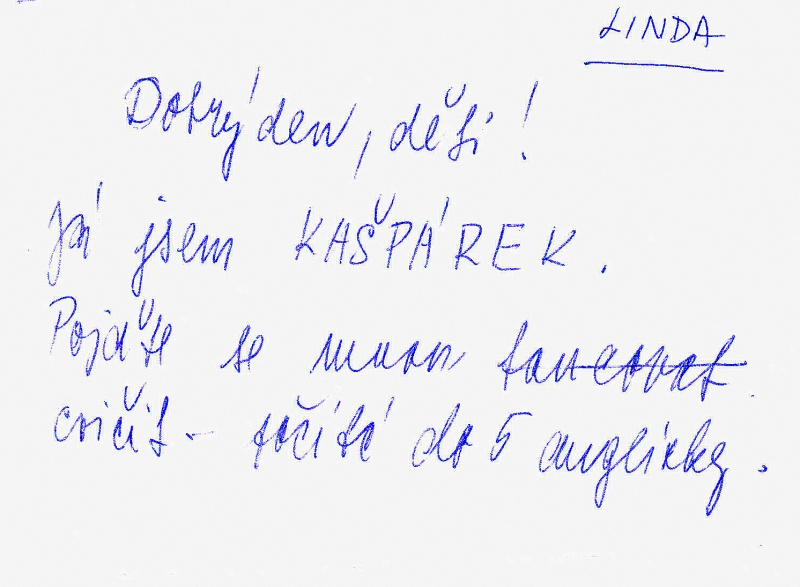 LINDA
Dobrý den, děti!
Já jsem KAŠPÁREK.
Pojďte se mnou tancovat
cvičit – do 5 anglicky.